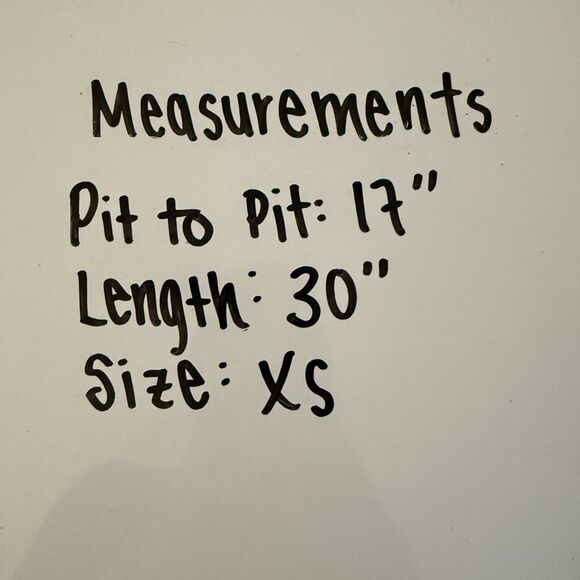 Measurements
Pit to Pit: 17"
Length: 30"
Size: XS